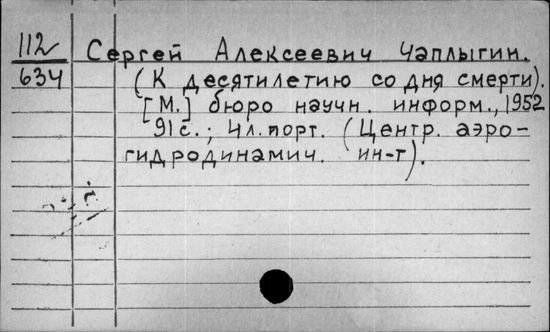 112 Сергей Алексеевич Чаплыгин.
634 (К десятилетию со дня смерти).
[М.] бюро научн. информ., 1952
91 с.; 4 л. порт. (Центр. аэро-
гидродинамич. ин-т).